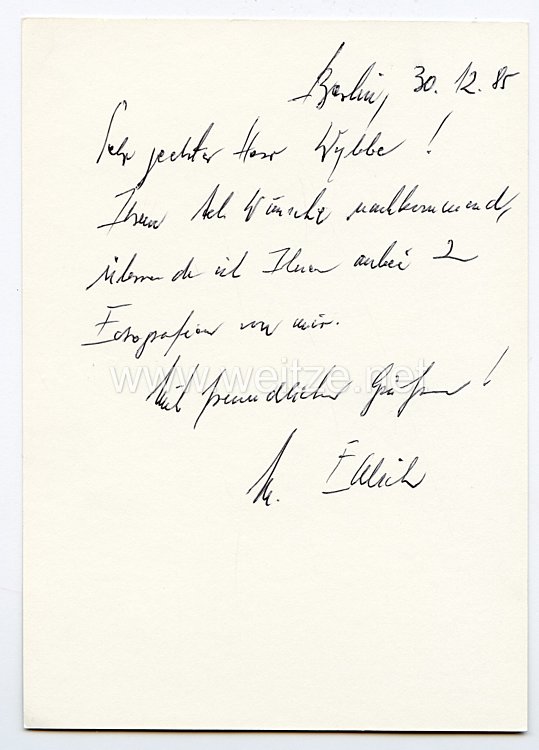 Berlin, 30.12.85
Sehr geehrter Herr Wybbe!
Ihrem Wunsche nachkommend,
übersende ich Ihnen anbei 2
Fotografien von mir.
www.weitze.net
Mit freundlichen Grüßen!